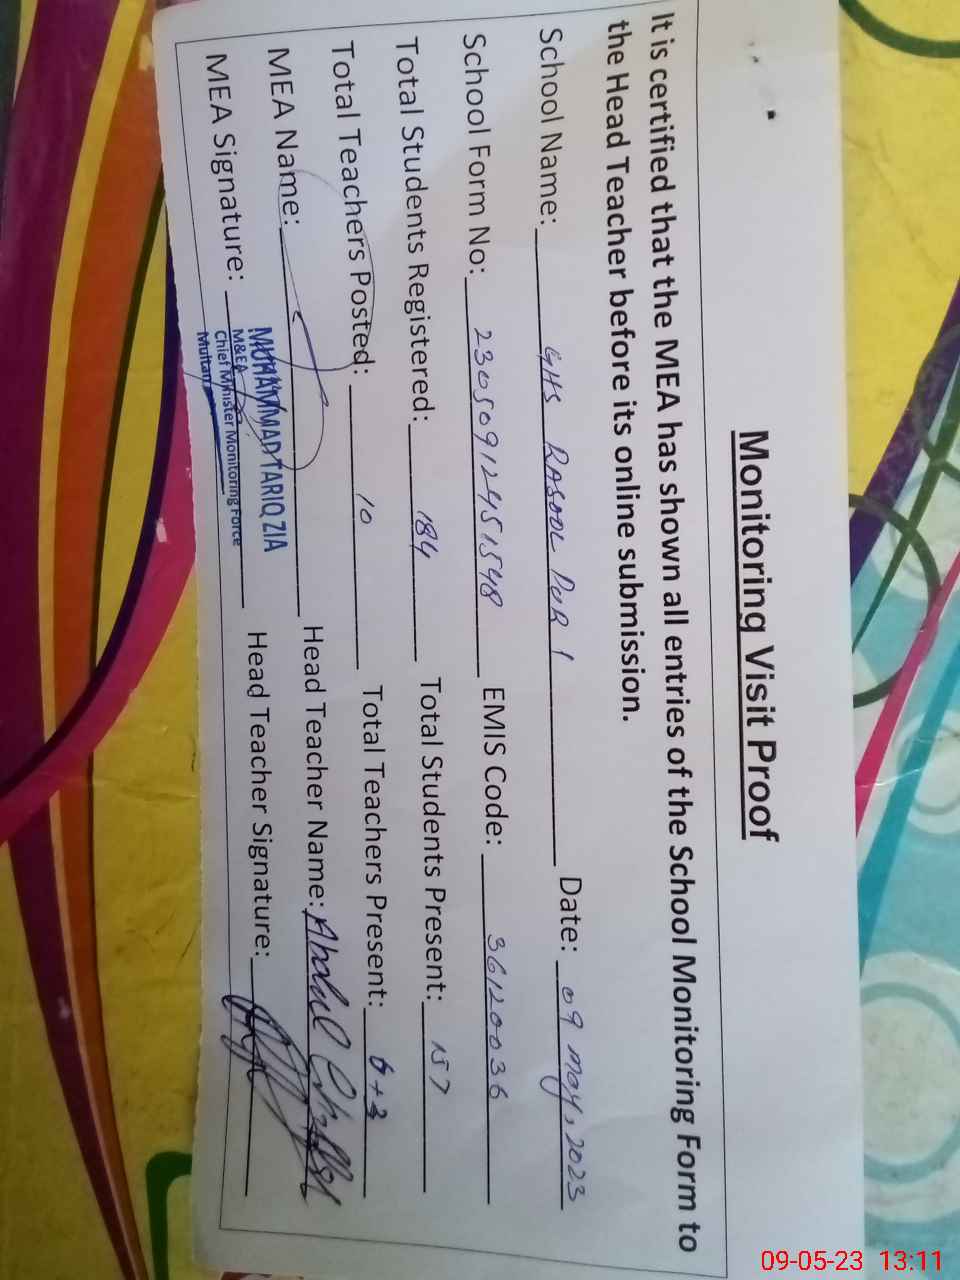 Monitoring Visit Proof
It is certified that the MEA has shown all entries of the School Monitoring Form to
the Head Teacher before its online submission.
School Name: GHS RASOOL PUR 1 Date: 09 may, 2023
School Form No: 230509124515948 EMIS Code: 36120036
Total Students Registered: 184 Total Students Present: 157
Total Teachers Posted: 10 Total Teachers Present: 6+3
MEA Name: Head Teacher Name: Abdul
MUHAMMAD TARIQ ZIA
MEA Signature: Head Teacher Signature:
M&EA
Chief Minister Monitoring Force
Multan
09-05-23 13:11